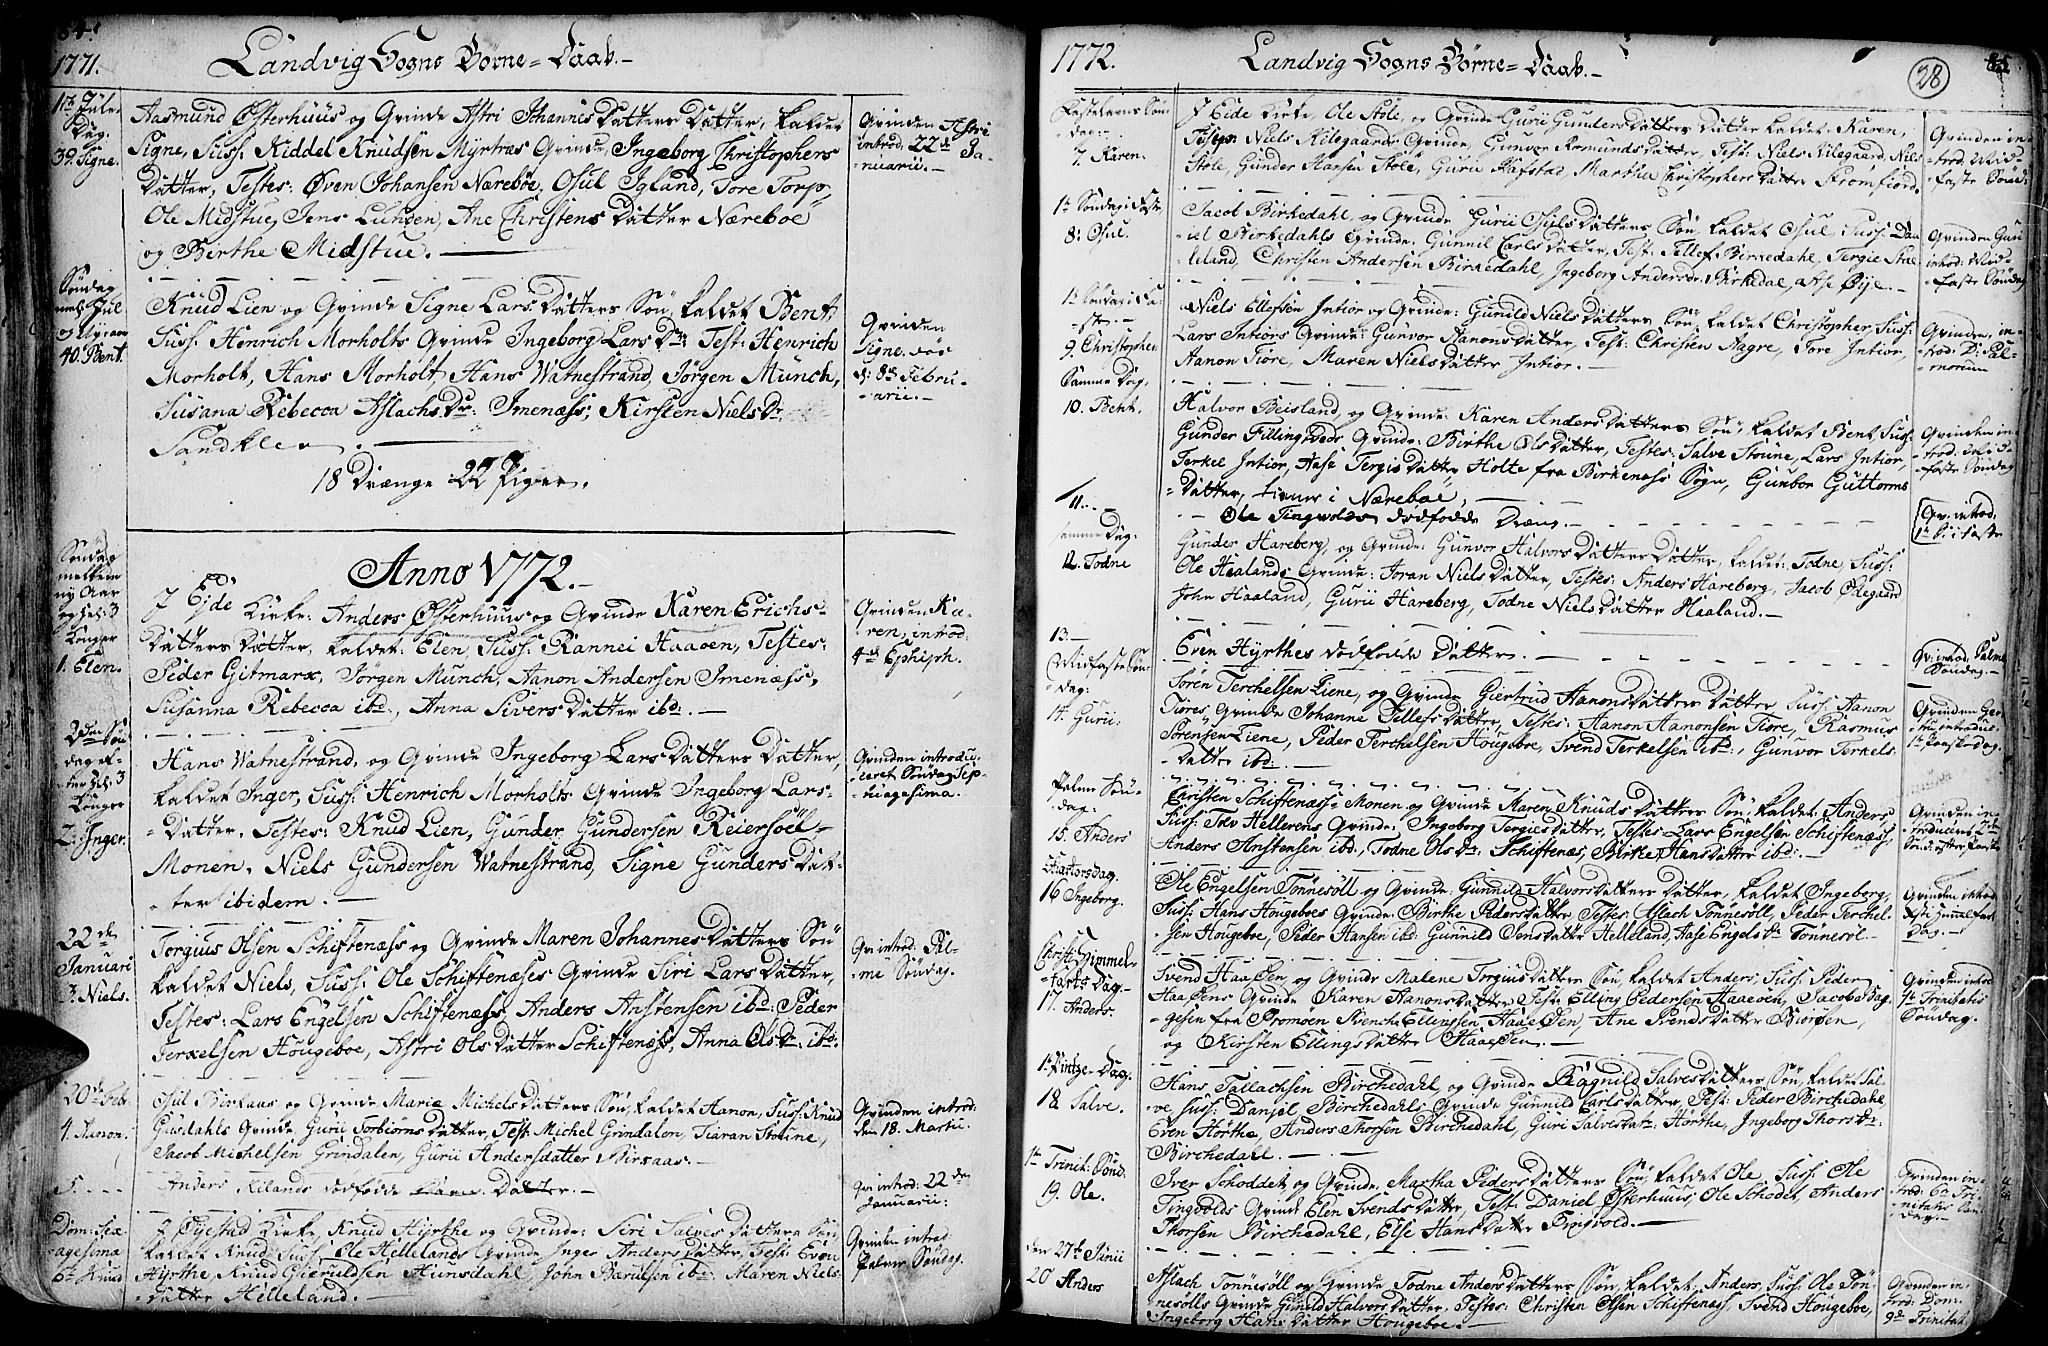 84.
1771. Landvig Sogns Börne=Daab.-
1te Jule
Dag.
39. Signe.
Aasmund Østerhuus og Qvinde Astri JohannisDatters Datter, kaldet
Signe, Suss: Kiddel Knudsen Myrtræs Qvinde, Ingeborg Christophers
Datter, Testes: Øven Johansen Næreböe, Osul Igland, Tore Torp,
Ole Midstue, Jens , Ane ChristensDatter Næreboe
og Birthe Midstue. —
Qvinden Astri
introd. 22de Ja-
nuarii. -
Söndag
mel: Jul
og Nyaar
40. Bent.
Knud Lien og Qvinde Signe LarsDatters Sön, kaldet Bent:
Suss: Henrich Morholts Qvinde Ingeborg LarsDr: Test: Henrich
Morholt, Hans Morholt, Hans Watnestrand, Jörgen Münch,
Susana Rebecca AslachsDr: Imenæss; Kirsten NielsDr:
Sandklev. —
Qvinden
Signe döe
d: 8de Febru-
-arii. -
18 Drænge 22 Piger.
Anno 1772.-
Söndag
mellem
ny Aar
og Hel: 3
Konger
1. Elen.
I Ejde Kirke: Anders Østerhuus og Qvinde Karen Erichs-
Datters Datter, kaldet: Elen, Suss: Rannei Haaöen, Testes:
Peder Gitmarx, Jörgen Münch, Aanon Andersen Imenæss,
Susanna Rebecca ibd:, Anna SiversDatter ibd:. -
Qvinden Ka-
ren, introd:
4de Ephiph.
2den Sön
dag ef-
ter Hel: 3
Konger
2. Inger.
Hans Watnestrand, og Qvinde Ingeborg LarsDatters Datter,
kaldet Inger, Suss: Henrich Morholts Qvinde Ingeborg Lars-
-Datter, Testes: Knud Lien, Gunder Gundersen Reiersöel-
Monen, Niels Gundersen Watnestrand, Signe GundersDat-
-ter ibidem. —
Qvinden introdu-
ceret Söndag Sep-
tuagesima.
22de
Januari
3. Niels.
Torgius Olsen Schiftenæss og Qvinde Maren JohannesDatters Sön
kaldet Niels, Suss: Ole Schiftenæses Qvinde Siri LarsDatter,
Testes: Lars Engelsen Schiftenæss, Anders Anstensen ibd: Peder
Terkelsen Hougeboe, Astri OlsDatter Schiftenæss, Anna OlsDr: ibd:
Qv: introd: Pal-
me Söndag.
20de Feb.
4. Aanon.
Osul Birkaas og Qvinde Marie MichelsDatters Sön, kaldet Aanon, Suss: Knud
Gusdahls Qvinde Gurii TorbiornsDatter, Test: Michel Grindalen, Tiaran Stoune,
Jacob Michelsen Grindalen, Gurii Andersdatter Birkaas. -
Qvinden introd:
den 18. Martii.
5. - - -
Anders Kilands dödfödde Datter. -
Qv: introd: 22den
Januarii:
Dom: Sex-
agesima
6. Knud
I Öyestad Kirke, Knud Hyrthe og Qvinde: Siri SalvesDatters Sön
kaldet Knud, Suss: Ole Hellelands Qvinde Inger AndersDatter, Test: Even
Hyrthe, Knud Gieruldsen Hunsdahl, John Barulsen ibd: Maren Niels-
-Datter Helleland. —
Qvinden introd
Palme Söndag.
1772. Landvig Sogns Börne=Daab.- 28 85
Fastelavns Sön
dag:
7. Karen.
I Eide Kirke, Ole Stöle, og Qvinde Gurii GundersDatters Datter kaldet: Karen,
Niels Kilegaards Qvinde, Gunvor Datter, Test: Niels Kilegaard, Niels
Stöle, Gunder Hansen Stöle, Gurii Hafstad, Marthe ChristophersDatter Strömfiord.
Qvinden in-
trod: Mid-
faste Sönd:
1te Söndag i Faste
8: Osul.
Jacob Birkedahl, og Qvinde Gurii OsulsDatters Sön, kaldet Osul, Suss: Dan
iel Birkedahls Qvinde: Gunnil CarlsDatter, Test: Tellef Birkedahl, Tergie Stal-
leland, Christen Andersen Birkedahl, Ingeborg Andersdr: Birkedal, Aase Øye. -
Qvinden Gu
introd: Mid-
faste Söndag
1te Söndag i Fa-
ste. -
9. Christopher
Niels Ellefsen Intior og Qvinde: Gunild NielsDatters Sön, kaldet Christopher, Suss:
Lars Intiors Qvinde: Gunvor AanonsDatter, Test: Christen Aagre, Tore Intior,
Aanon Tiore, Maren NielsDatter Intior. —
Qvinden in-
trod: D: Pal-
marum
Samme Dag,
10. Bent.
Halvor Beisland, og Qvinde: Karen AndersDatters Sön, kaldet Bent, Suss:
Gunder Qvinde: Birthe OlsDatter, Testes: Salve Stoune, Lars Intior,
Terkel Intior, Aase TergisDatter Holte fra Birkenæss Sogn, Gunbor Guttorms
-Datter, tiener i Næreboe,
Qvinden in-
trod:
faste Söndag
11. - -
Ole Tingvolds dödfödde Dræng. -
Qv. introd.
1te S: i Faste
samme Dag:
12. Todne
Gunder Hareberg, og Qvinde: Gunvor HalvorsDatters Datter, kaldet: Todne, Suss:
Ole Haalands Qvinde: Joran NielsDatter, Testes: Anders Hareberg, Jacob Ødegaard
John Haaland, Gurii Hareberg, Todne NielsDatter Haaland. —
13. —
Even Hyrthes dödfödde Datter. -
Qv: introd: Palme
Söndag. -
Midfaste Sön-
dag:
14. Gurii:
Sören Terchelsen Liene, og Qvinde Giertrud AanonsDatters Datter, Suss: Aanon
Tiöres Qvinde Johanne TellefsDatter, Testes: Aanon Aanonsen Tiöre, Rasmus
Sörensen Liene, Peder Terchelsen Hougeboe, Svend Terkelsen ibd:, Gunvor Terkels
-Datter ibd: —
Qvinden Ger-
tru introduc:
1te Paaskedag.
Palme Sön-
dag:
15. Anders
Christen Schiftenæss=Monen og Qvinde Karen KnudsDatters Sön, kaldet Anders
Suss: Hellerens Qvinde: Ingeborg TergiusDatter, Testes: Lars Engelsen Schiftenæss,
Anders Anstensen ibd, Todne OlsDr: Schiftenæs, Birthe HansDatter ibd: -
Qvinden in-
troduceres 2den
Sönd: efter Paaske
Skiærtorsdag.
16 Ingeborg.
Ole Engelsen Tönnesöll og Qvinde: Gunnild HalvorsDatters Datter, kaldet Ingeborg,
Suss: Hans Hougeboes Qvinde: Birthe PedersDatter Testes: Aslach Tonnesöll, Peder Terchel-
sen Hougeboe, Peder Hansen ibd: Gunnild JensDatter Helleland, Aase EngelsDr Tönnesöl.-
Qvinden introd
Xsti Himmelfart
Dag. —
Christi Himmel-
-farts Dag.-
17. Anders.
Svend Haaöen, og Qvinde Malene TorgiusDatters Sön, kaldet Anders, Suss: Peder
Haaöens Qvinde Karen AanonsDatter Test: Elling Pedersen Haaeöen, Jacob
gesen fra Tromöen, Svencke Ellingsen Haaeöen, Ane SvendsDatter Bioröen,
og Kirsten EllingsDatter Haaeöen. —
Qvinden introd
1te Trinitatis
Söndag.
1te Pintze-Dag.
18. Salve.
Hans Tallachsen Birchedahl, og Qvinde Ragnild SalvesDatters Sön, kaldet Sal-
ve, Suss: Danjel Birchedahls Qvinde Gunnild CarlsDatter, Test: Peder Birchedahl
Even Hörthe, Anders Thorsen Birchedahl, Guri SalvesDatr: Hörthe, Ingeborg ThorsDr:
Birchedahl. —
1te Trinit: Sönd.
19. Ole.
Iver Schoddet og Qvinde Martha PedersDatters Sön, kaldet Ole, Suss: Ole
Tingvolds Qvinde Elen SvendsDatter, Test: Daniel Østerhuus, Ole Schodet, Anders
Thorsen Birchedahl, Else HansDatter Tingvold. —
Qvinden in-
trod: 6te Tri-
nitatis Sön
dag. —
den 27de Junii
20 Anders
Aslach Tonnesöll og Qvinde Todne AndersDatters Sön, kaldet: Anders, Suss: Ole Tön-
nesölls Qvinde Gunild HalvorsDatter, Testes: Christen Olsen Schiftenæss, Svend Hougeboe,
Ingeborg HansDatter Hougeboe. —
Qvinden in-
trod: Dom:
9de Trinitat: